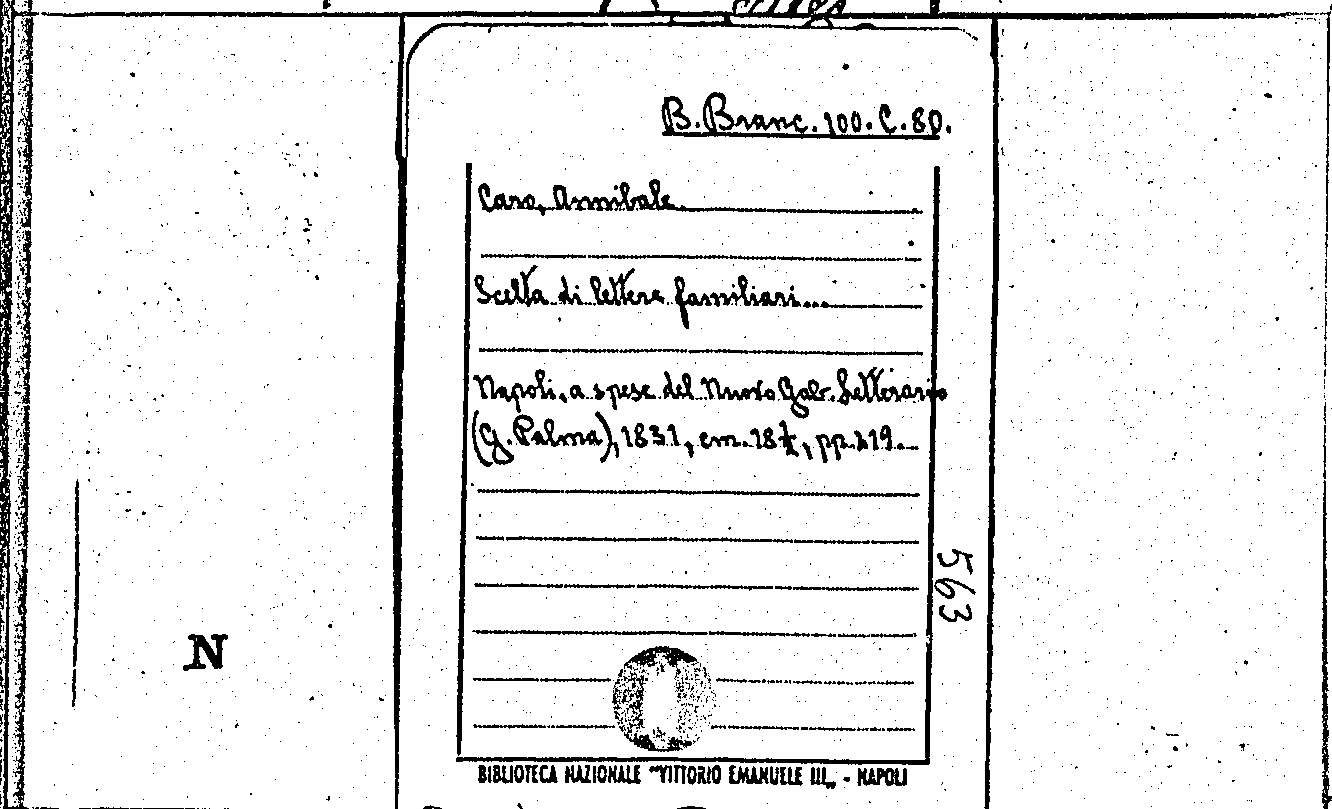 B. Branc. 100. C. 80.
Caro, Annibale.
Scelta di lettere familiari...
Napoli, a spese del Nuovo Gab. Letterario
(G. Palma), 1831, cm. 18½, pp. 219.
563
N
BIBLIOTECA NAZIONALE "VITTORIO EMANUELE III„ - NAPOLI